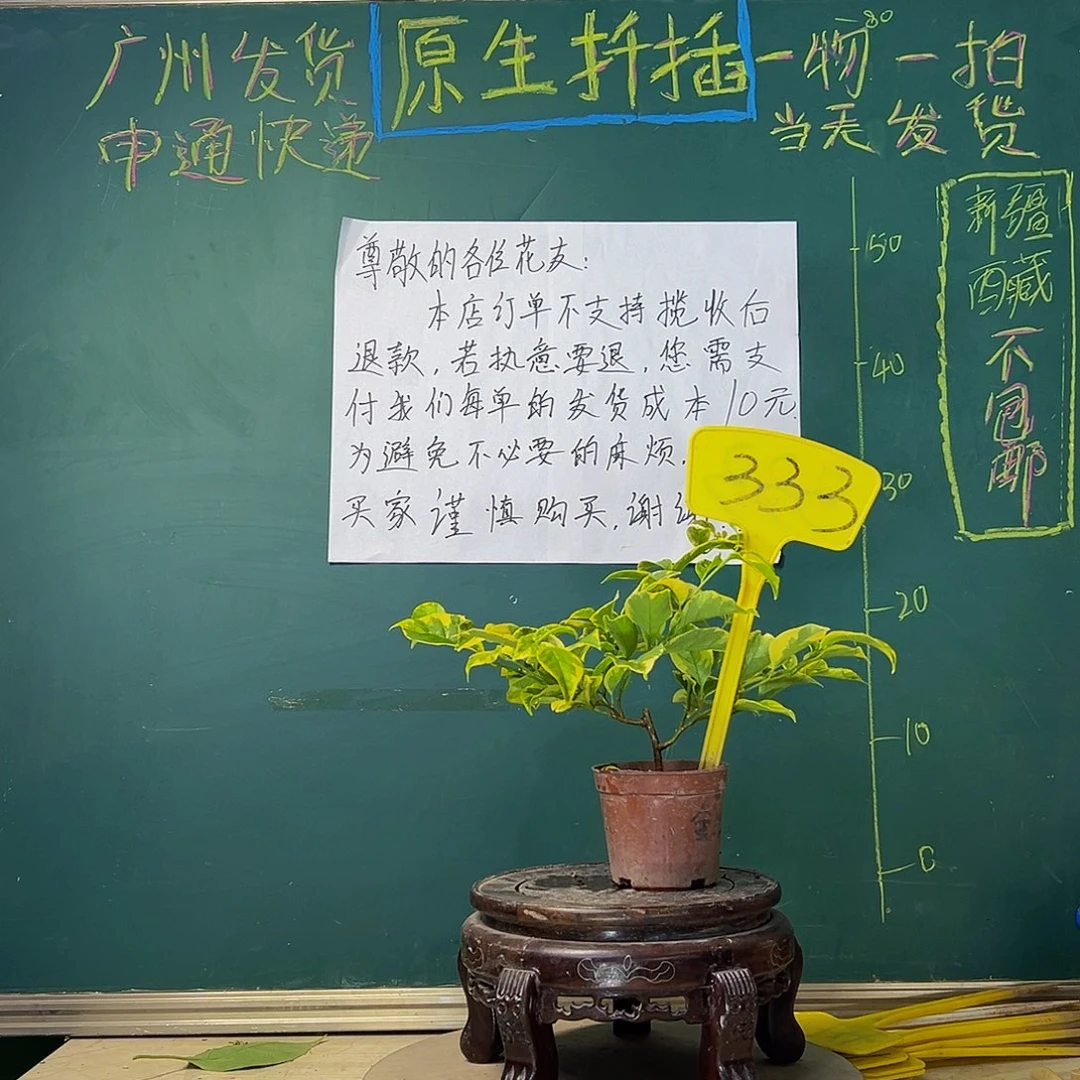 广州发货
申通快递
原生扦插
一物一拍
当天发货
新疆
西藏
不包邮
尊敬的各位花友:
本店订单不支持揽收后
退款,若执意要退,您需支
付我们每单的发货成本10元.
为避免不必要的麻烦.
买家谨慎购买,谢
333
50
40
30
20
10
0